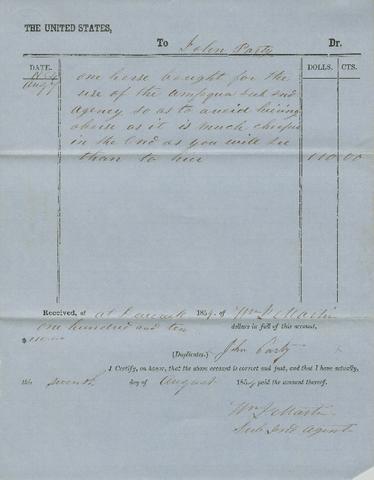 THE UNITED STATES,
To John Party Dr.
DATE. DOLLS. CTS.
1854
Aug 7 one horse bought for the
use of the umpqua sub ind
Agency so as to avoid hiring
ahorse as it is much cheaper
in the End as you will see
than to hire 110 00
Received, at 1854, of Wm J Martin
one hundred and ten dollars in full of this account.
$
(Duplicates.) John Party
I Certify, on honor, that the above account is correct and just, and that I have actually,
this seventh day of August 1854 paid the amount thereof.
Wm J Martin
Sub Ind Agent